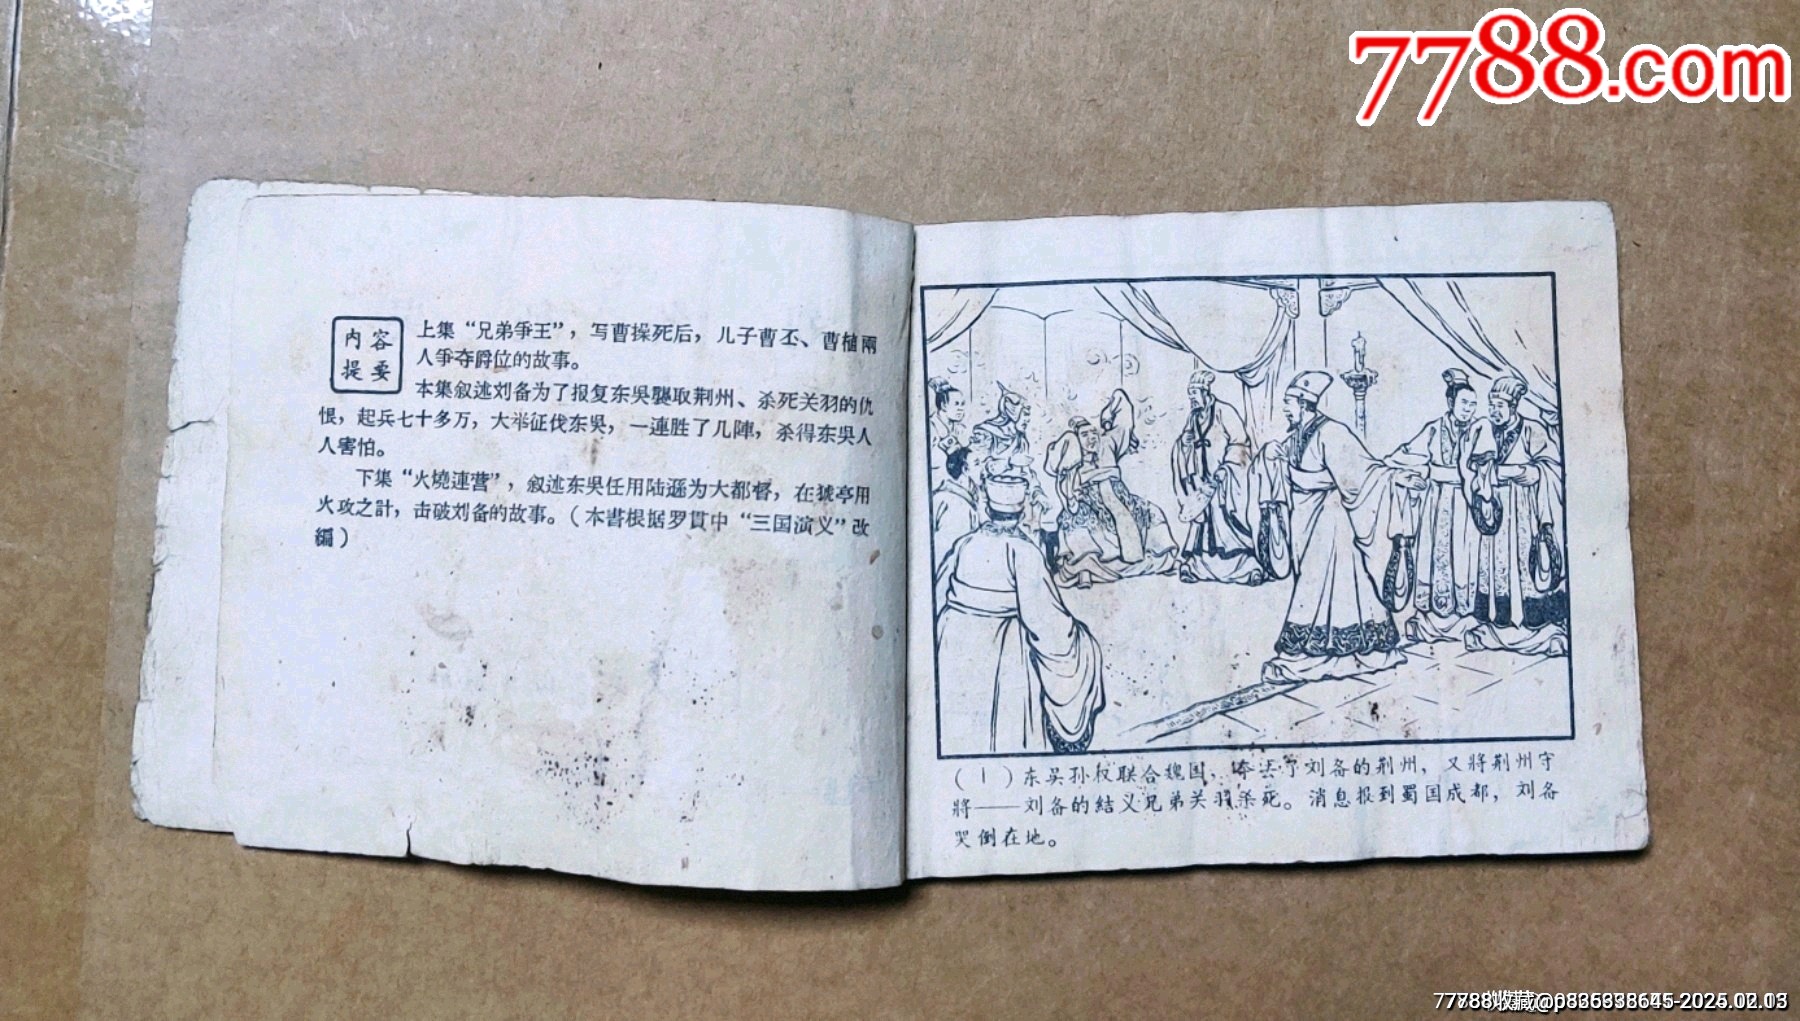 7788.com
内容
提要
上集“兄弟爭王”，写曹操死后，儿子曹丕、曹植兩
人爭夺爵位的故事。
本集叙述刘备为了报复东吳襲取荆州、杀死关羽的仇
恨，起兵七十多万，大举征伐东吳，一連胜了几陣，杀得东吳人
人害怕。
下集“火燒連营”，叙述东吳任用陆遜为大都督，在猇亭用
火攻之計，击破刘备的故事。（本書根据罗貫中“三国演义”改
編）
（1）东吴孙权联合魏国，夺去了刘备的荆州，又將荆州守
將——刘备的結义兄弟关羽杀死。消息报到蜀国成都，刘备
哭倒在地。